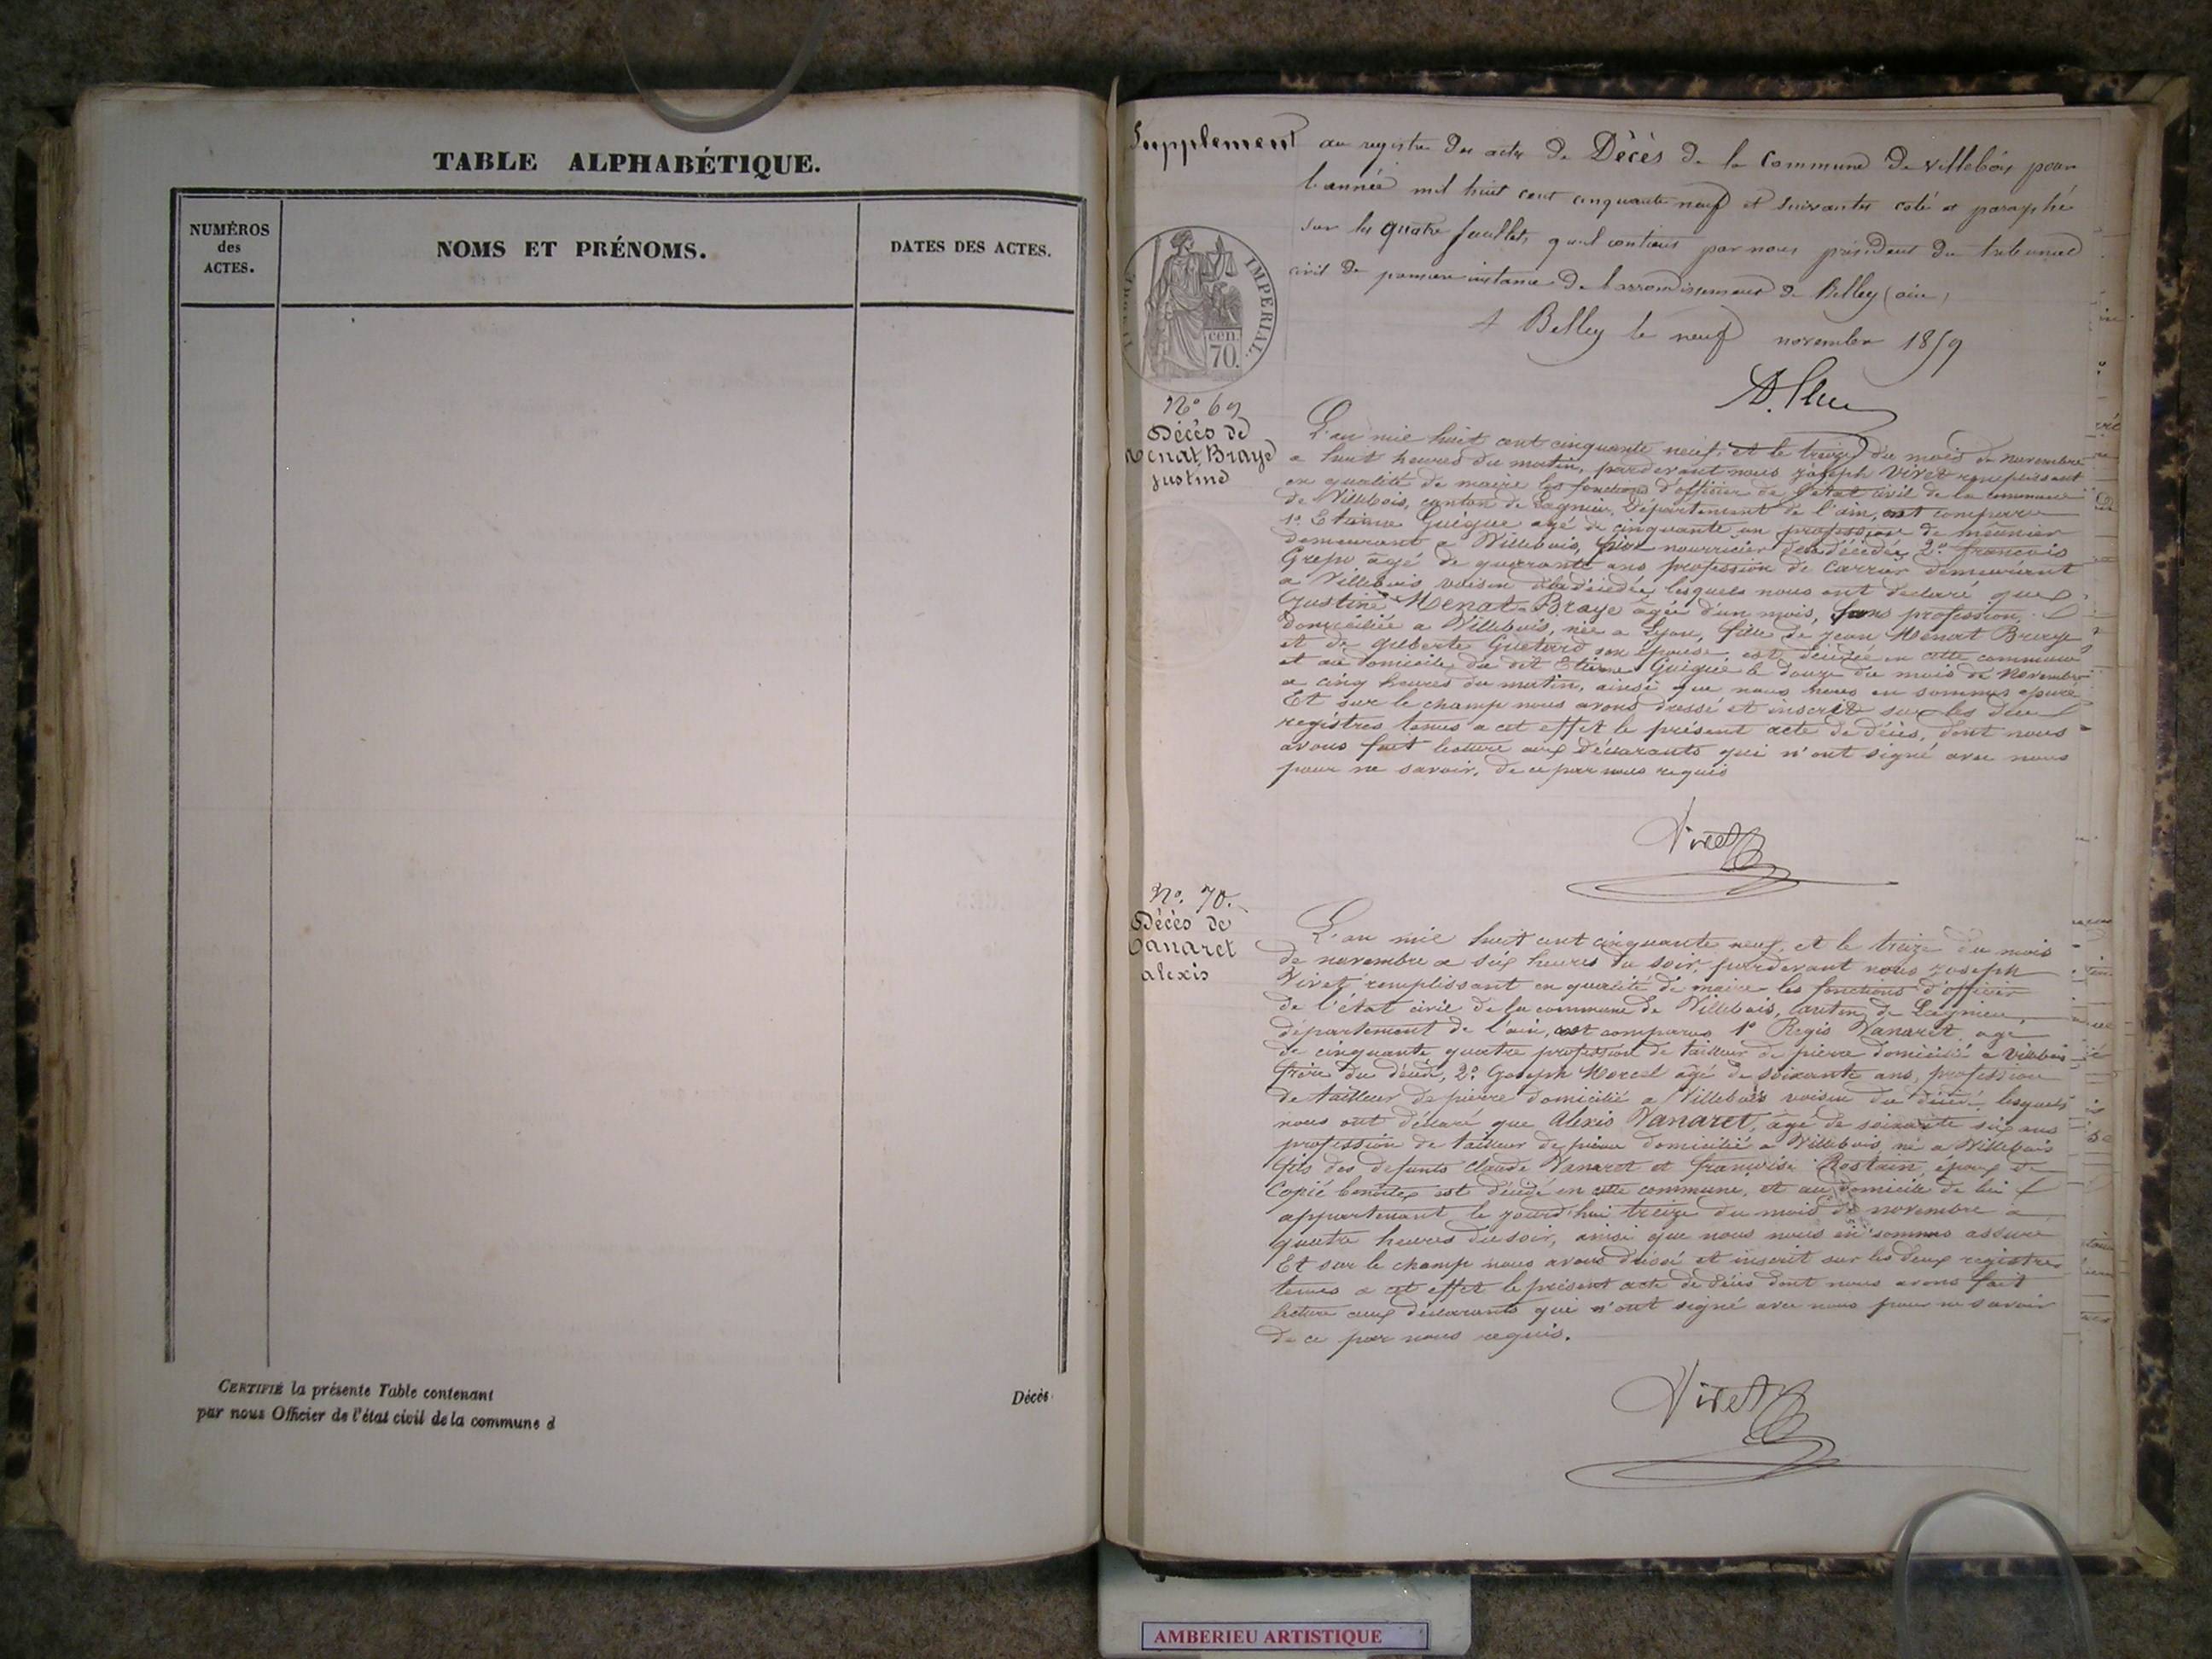 TABLE ALPHABÉTIQUE.
NUMÉROS
des
ACTES.
NOMS ET PRÉNOMS.
DATES DES ACTES.
CERTIFIÉ la présente Table contenant
Décès
par nous Officier de l'état civil de la commune d
Supplement au registre des actes de Décès de la Commune de Villebois pour
l'année mil huit cent cinquante neuf et suivantes coté et paraphé
sur les quatre feuillets qu'il contient par nous président du tribunal
civil de premiere instance de l'arrondissement de Belley (ain)
A Belley le neuf novembre 1859
IMPERIAL.
cen.
70.
N° 69
Décès de
Menat Braye
Justine
L'an mil huit cent cinquante neuf, et le treize du mois de novembre
a huit heures du matin, pardevant nous Joseph Vivet remplissant
en qualité de maire les fonctions d'officier de l'état civil de la commune
de Villebois, canton de Lagnieu, Département de l'ain, ont comparu
1° Etienne Guigue agé de cinquante un profession de meunier
demeurant a Villebois, père nourricier de la décédée, 2° francois
Grepu agé de quarante ans profession de Carrier demeurant
a Villebois voisin de la décédée, lesquels nous ont declaré que
Justine Menat-Braye agée d'un mois, sans profession,
domiciliée a Villebois, née a Lyon, fille de Jean Menat Braye
et de Gilberte Guetard son épouse est décédée en cette commune
et au domicile du dit Etienne Guigue le douze du mois de Novembre
a cinq heures du matin, ainsi que nous nous en sommes assuré
Et sur le champ nous avons dressé et inscrit sur les deux
registres tenus a cet effet le présent acte de décès, dont nous
avons fait lecture aux déclarants qui n'ont signé avec nous
pour ne savoir, de ce par nous requis
Vivet
N°. 70.
Décès de
Vanaret
alexis
L'an mil huit cent cinquante neuf, et le treize du mois
de novembre a six heures du soir, pardevant nous Joseph
Vivet remplissant en qualité de maire les fonctions d'officier
de l'état civil de la commune de Villebois, canton de Lagnieu,
département de l'ain, ont comparus 1° Régis Vanaret agé
de cinquante quatre profession de tailleur de pierre domicilié a Villebois
frère du décédé, 2° Joseph Morcel agé de soixante ans, profession
de tailleur de pierre domicilié a Villebois voisin du décédé lesquels
nous ont déclaré que Alexis Vanaret, agé de soixante six ans
profession de tailleur de pierre domicilié a Villebois, né a Villebois
fils des defunts Claude Vanaret et françoise Rostain, époux de
Copié benoite est décédé en cette commune, et au domicile de lui
appartenant le jourd'hui treize du mois de novembre a
quatre heures du soir, ainsi que nous nous en sommes assuré
Et sur le champ nous avons dressé et inscrit sur les deux registres
tenus a cet effet le présent acte de décès dont nous avons fait
lecture aux déclarants qui n'ont signé avec nous pour ne savoir
de ce par nous requis.
Vivet
AMBERIEU ARTISTIQUE